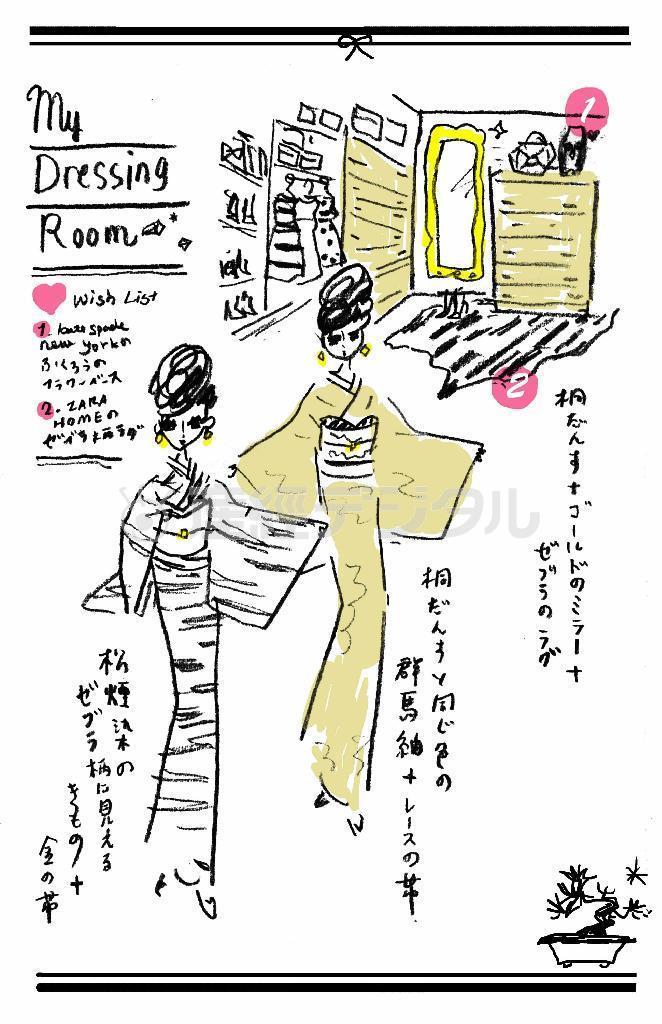 My
Dressing
Room
Wish List
1. kate spade
new yorkの
ふくろうの
フラワーベース
2. ZARA
HOMEの
ゼブラ柄ラグ
1
2
桐だんす+ゴールドのミラー+
ゼブラのラグ
桐だんすと同じ色の
群馬紬+レースの帯
松煙染の
ゼブラ柄に見える
きもの+
金の帯
産経デジタル